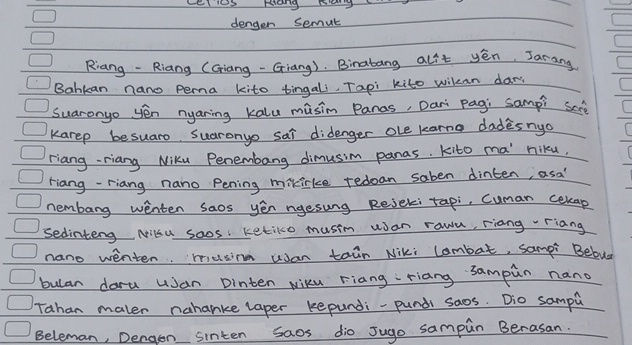 Cerios Riang Riang
dengen Semut
Riang - Riang (Giang - Giang). Binatang alit yên Jarang
Bahkan nano Perna kito tingali. Tapi kito wikan dari
Suaronyo yên nyaring kalu mûsîm Panas, Dari Pagi sampî
Karep besuaro. Suaronyo saî didenger ole karno dadêsnyo
riang -riang Niku Penembang dimusim panas. kito ma' niku,
riang - riang nano Pening mikirke redoan saben dinten, asa'
nembang wênten saos yên ngesung Rejeki tapi, Cuman cekap
sedinteng Niku saos. ketiko musim ujan rawu, riang - riang
nano wênten. musim ujan taûn Niki lambat, sampî Bebu
bulan daru ujan Dinten Niku riang - riang sampûn nano
Tahan maler nahanke laper kepundi - pundi saos. Dio sampû
Beleman, Dengen sinten saos dio Jugo sampûn Berasan.